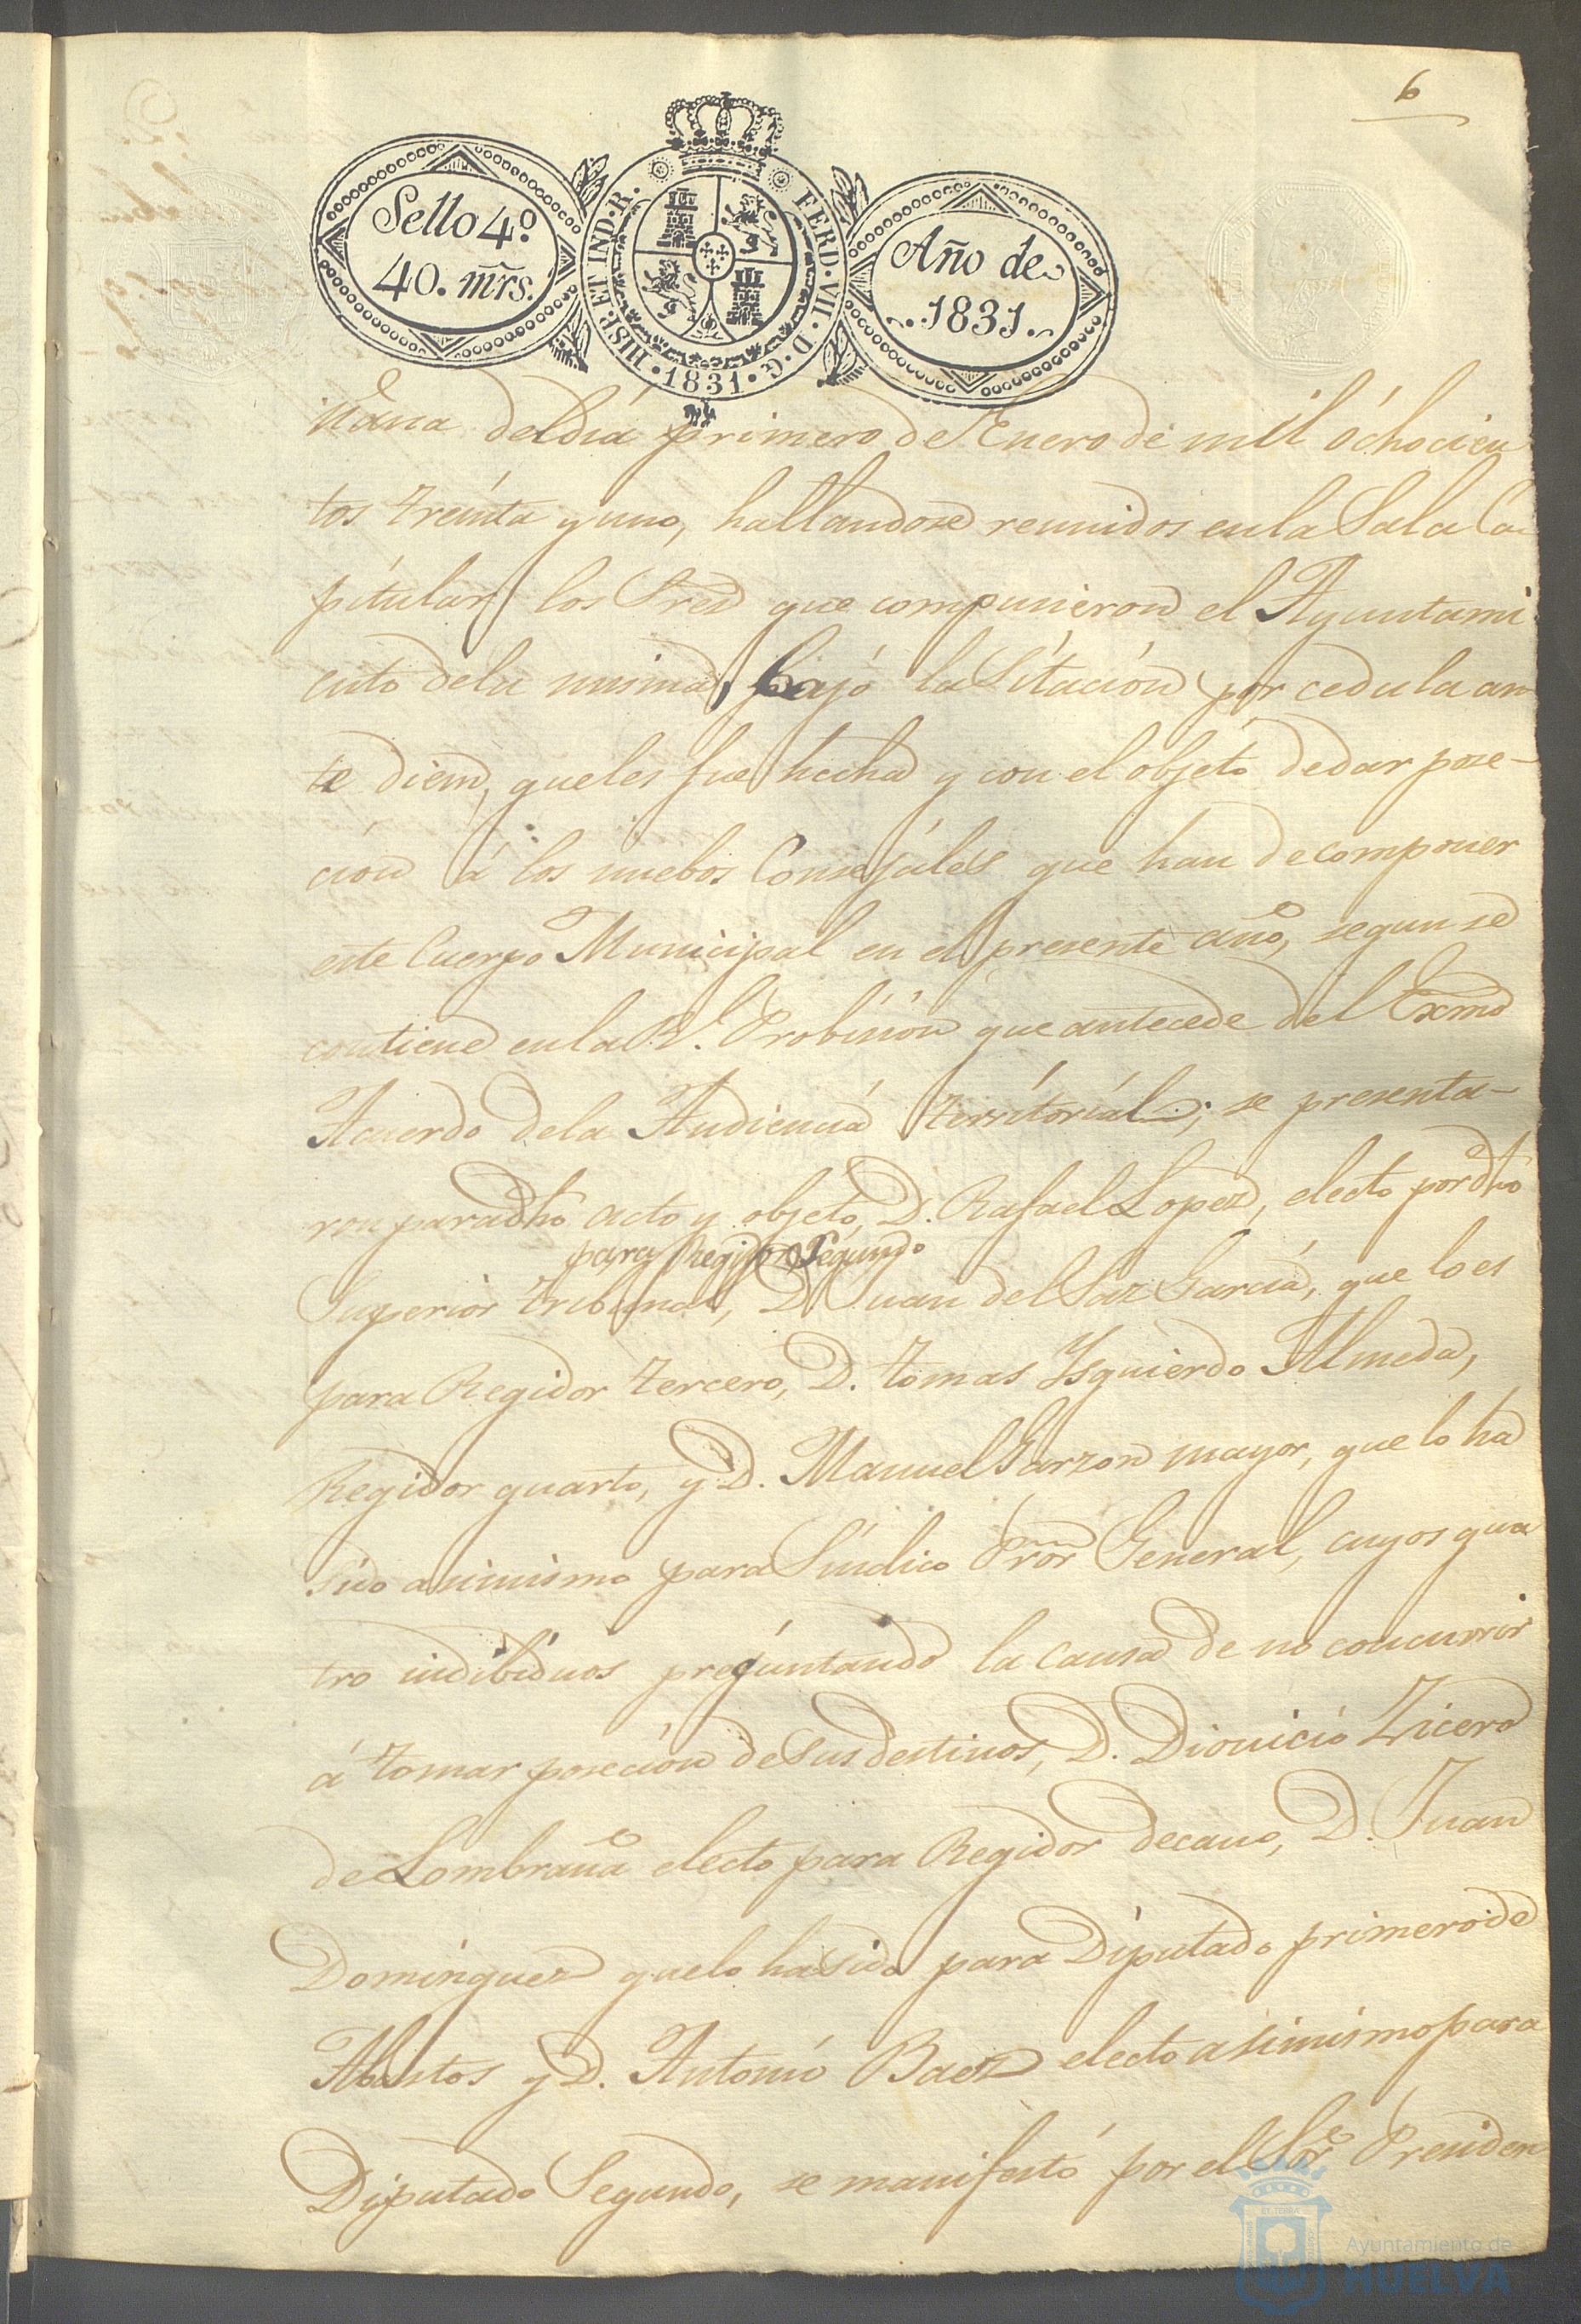 6
Sello 4º
40. mrs.
HISP. ET IND. R. FERD. VII. D. G. 1831.
Año de
1831.
ñana del dia primero de Enero de mil óchocien
tos treinta y uno, hallandose reunidos en la Sala Ca
pitular los Sres que compunieron el Ayuntami
ento de la misma, bajó la Sitación por cedula an
te diem, que les fue hecha y con el objeto de dar pose-
cion á los nuebos Consejales que han de componer
este Cuerpo Municipal en el presente año, segun se
contiene en la Rl. Probision que antecede del Exmo
Acuerdo de la Audiencia territorial; se presenta-
ron para dho acto y objeto, D. Rafael Lopez, electo por dho
para Regidor Segundo
Superior tribunal, D. Juan del Saz Garcia, que lo es
para Regidor tercero, D. tomas Ysquierdo Almeda,
Regidor quarto, y D. Manuel Garzon mayor, que lo ha
sido asimismo para Sindico Pror General, cuyos qua
tro indibiduos preguntando la causa de no concurrir
á tomar posecion de Sus destinos, D. Dionicio Zicero
de Lombraña electo para Regidor decano, D. Juan
Dominguez que lo ha sido para Diputado primero de
Abastos y D. Antonio Baez electo asimismo para
Diputado Segundo, se manifestó por el Sor Presiden
Ayuntamiento de
HUELVA